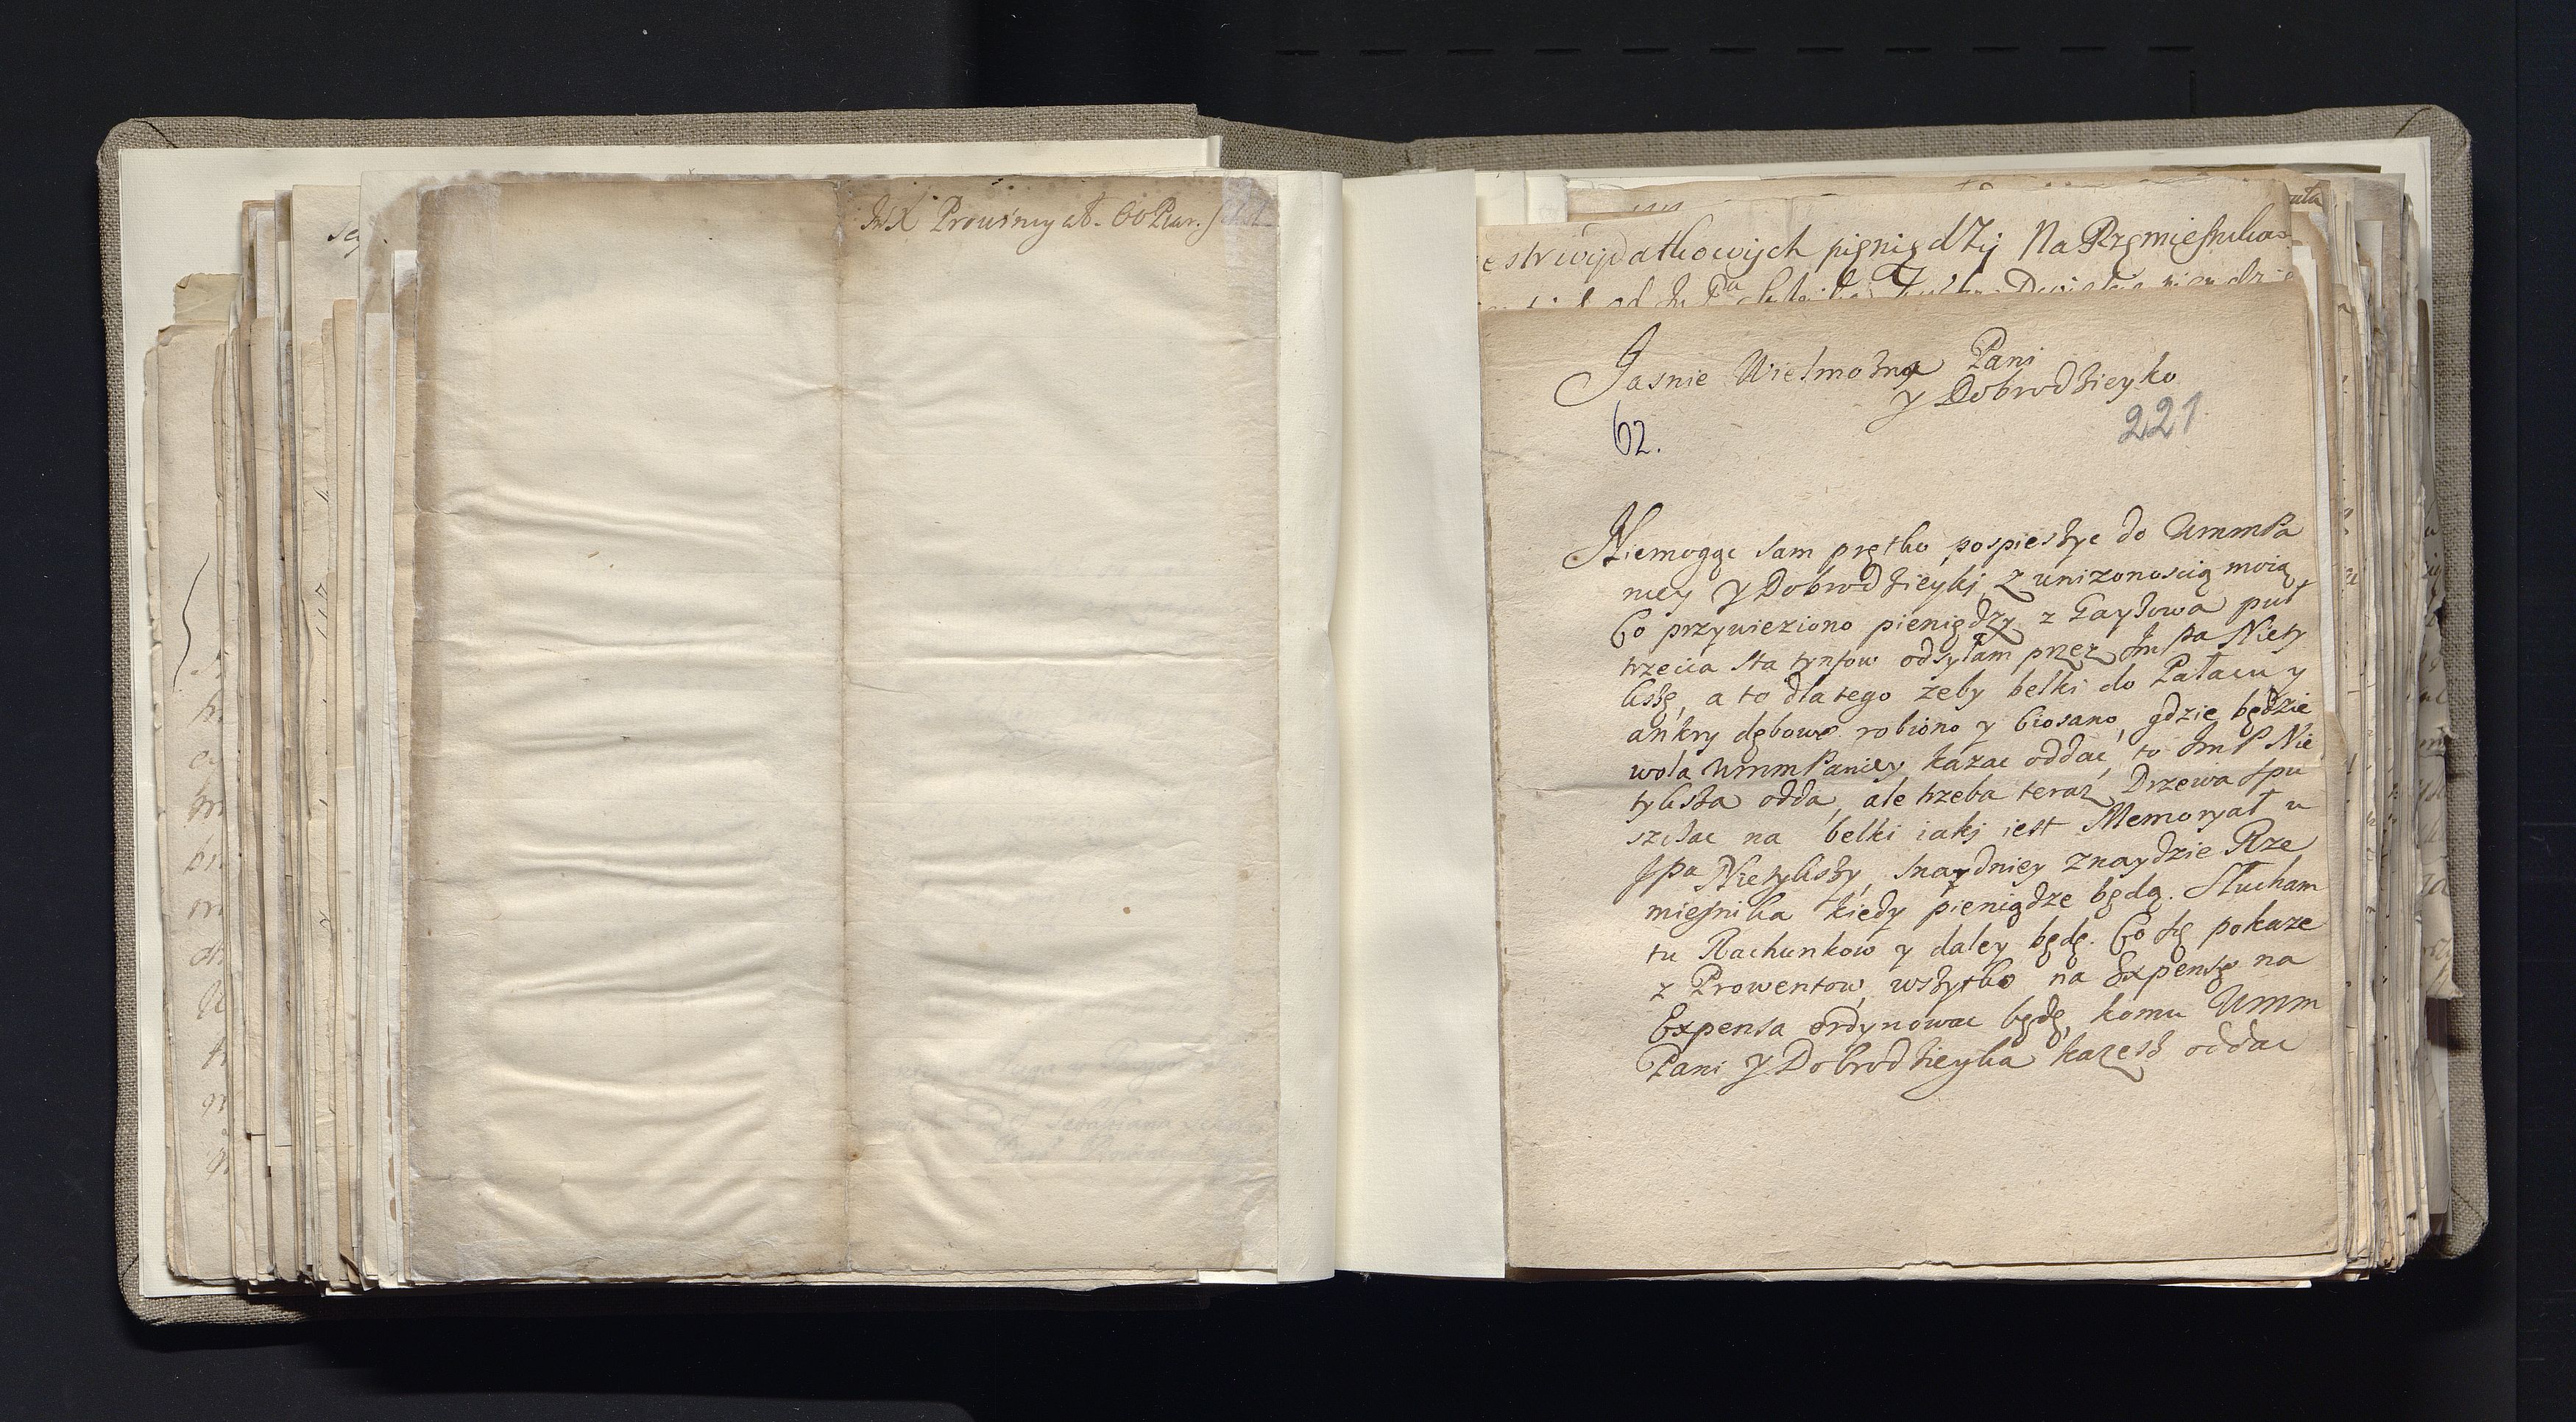 JWX Prowincyał
estr wydatkowych pieniędzy Na Rzemiesnikow
Jasnie Wielmozna Pani
y Dobrodzieyko
62.
221
Niemogąc sam prętko pospieszyc do WmmPa
niey y Dobrodzieyki z unizonoscią moią
Co przywieziono pieniędzy z Gayzowa puł
trzecia sta tynfow odsyłam przez Im Pa Niety
liszę, a to dlatego zeby belki do Pałacu y
ankry dębowe robiono y Ciosano, gdzie będzie
wola WmmPaniey kazac oddac, to Im P Nie
tylisza odda, ale trzeba teraz Drzewa spu
szczac na belki iaki iest Memoryał u
JPa Nietyliszy, snaydniey znaydzie Rze
miesnika kiedy pieniądze będą. Słucham
tu Rachunkow y daley będę. Co się pokaze
z Prowentow, wszytko na Expensę na
Expensa ordynowac będę, komu Wmm
Pani y Dobrodzieyka kazesz oddac